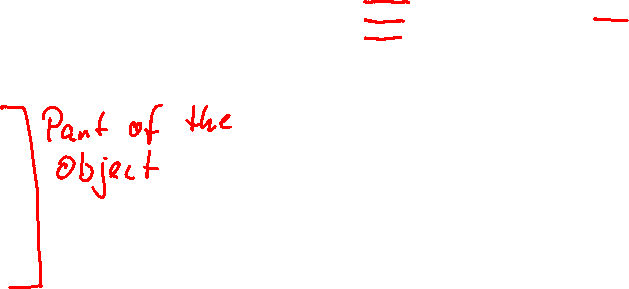 Part of the
Object